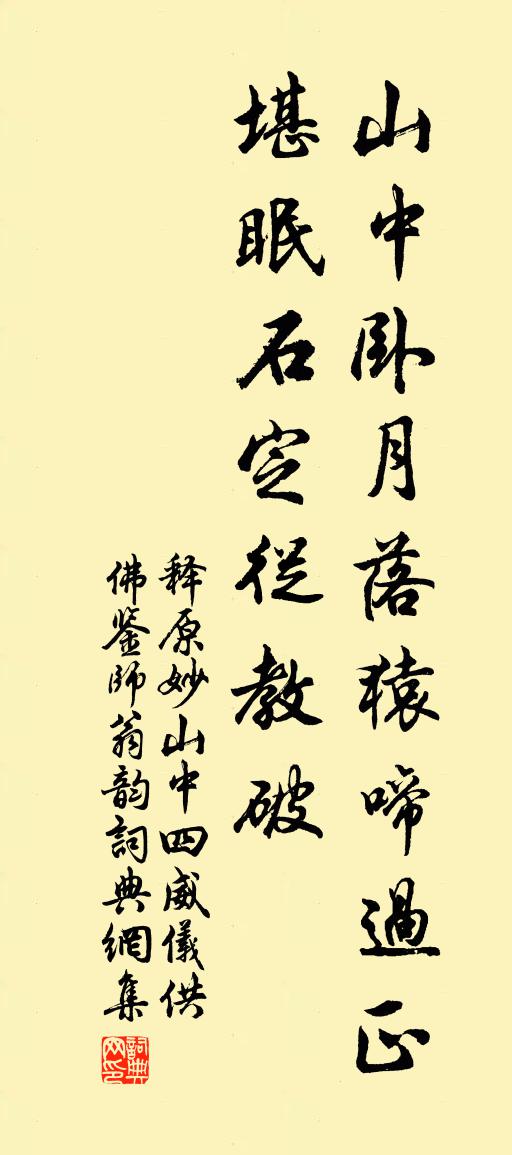 山中卧月落猿啼過正
堪眠石定從教破
释原妙山中四威儀供
佛鉴師翁韵詞典網集
詞典网印